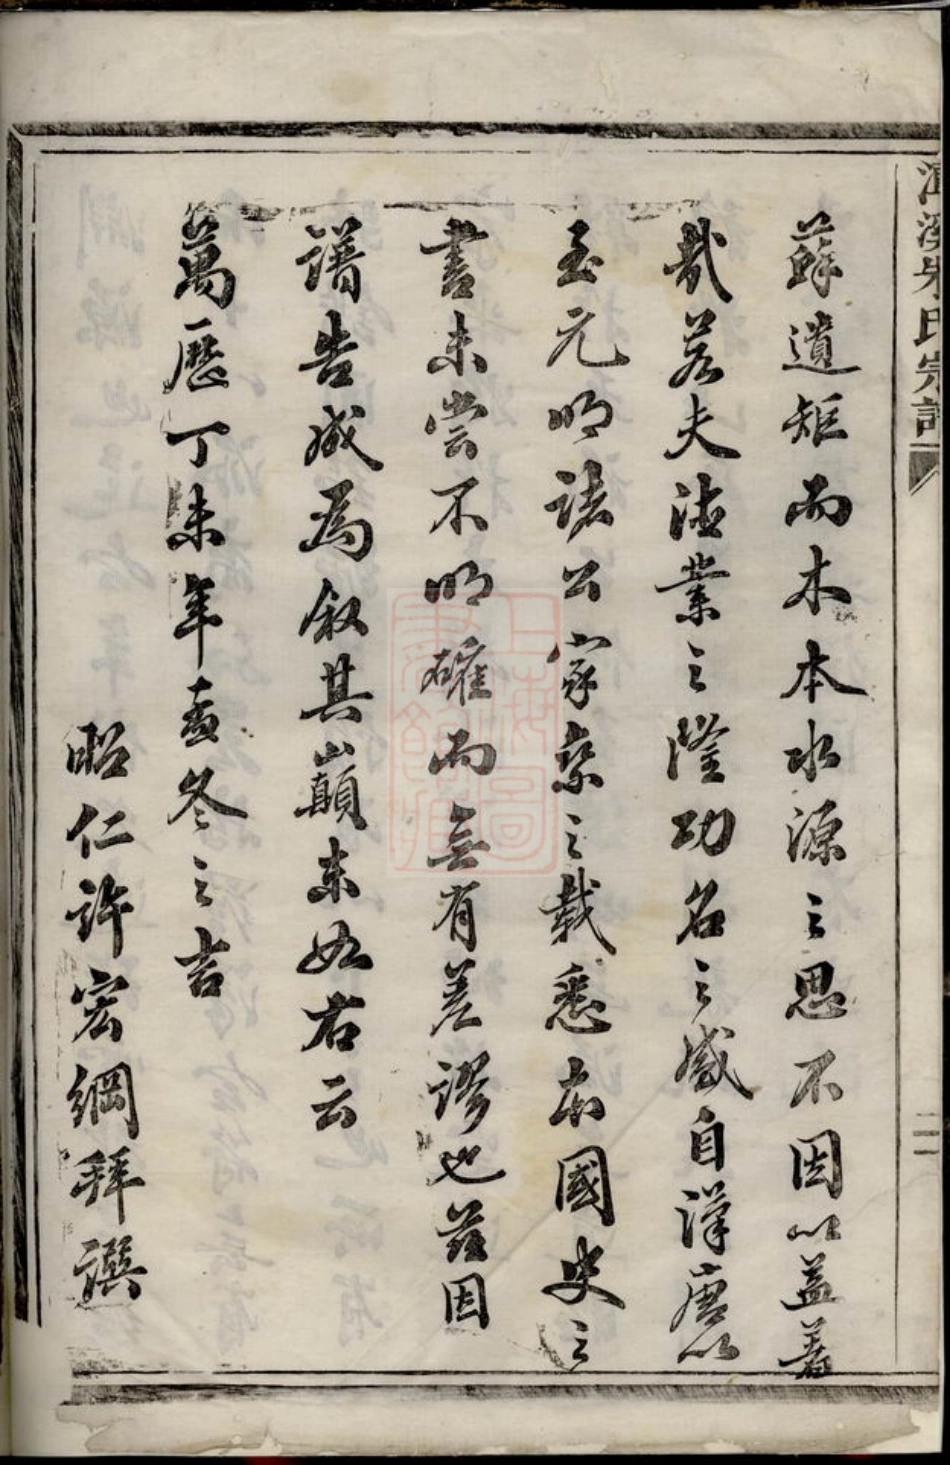 蘇遺矩而木本水源之思不因以益著
哉若夫德業之隆功名之盛自漢唐以
至元明諸公家乘之載悉本國史之
書未嘗不明確而無有差謬也茲因
譜告成為叙其巔末如右云
萬歷丁未年孟冬之吉
昭仁許宏綱拜譔
溪朱氏宗譜
二
上海圖書館